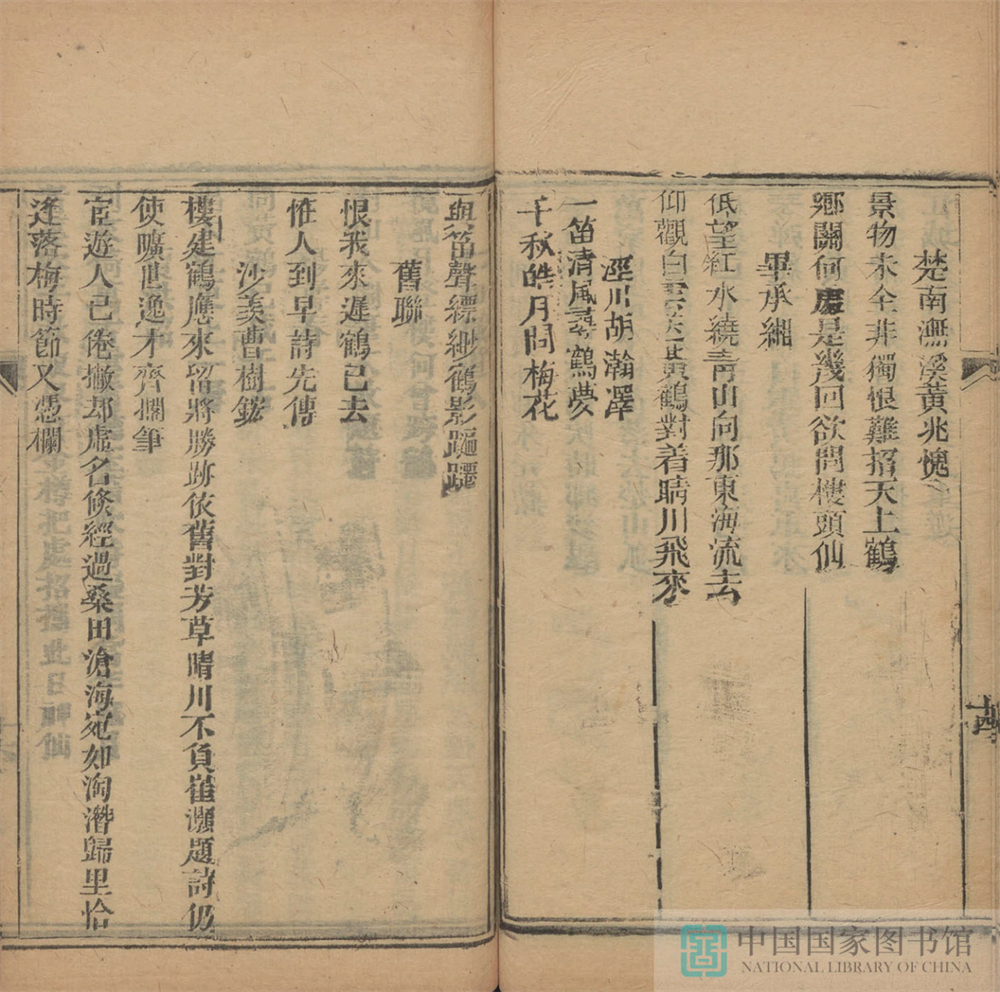 楚南潕溪黃兆槐
景物未全非獨恨難招天上鶴
鄉關何處是幾回欲問樓頭仙
畢承緗
低望紅水繞青山向那東海流去
仰觀白雲送黃鶴對着晴川飛來
涇川胡瀚澤
一笛清風尋鶴夢
千秋皓月問梅花
十四
與笛聲縹緲鶴影蹁躚
舊聯
恨我來遲鶴已去
惟人到早詩先傳
沙羨曹樹
樓建鶴應來留將勝跡依舊對芳草晴川不負崔灝題詩仍
使曠世逸才齊擱筆
宦遊人已倦撇却虛名倏經過桑田滄海宛如淘潛歸里恰
逢落梅時節又憑欄
中国国家图书馆
NATIONAL LIBRARY OF CHINA